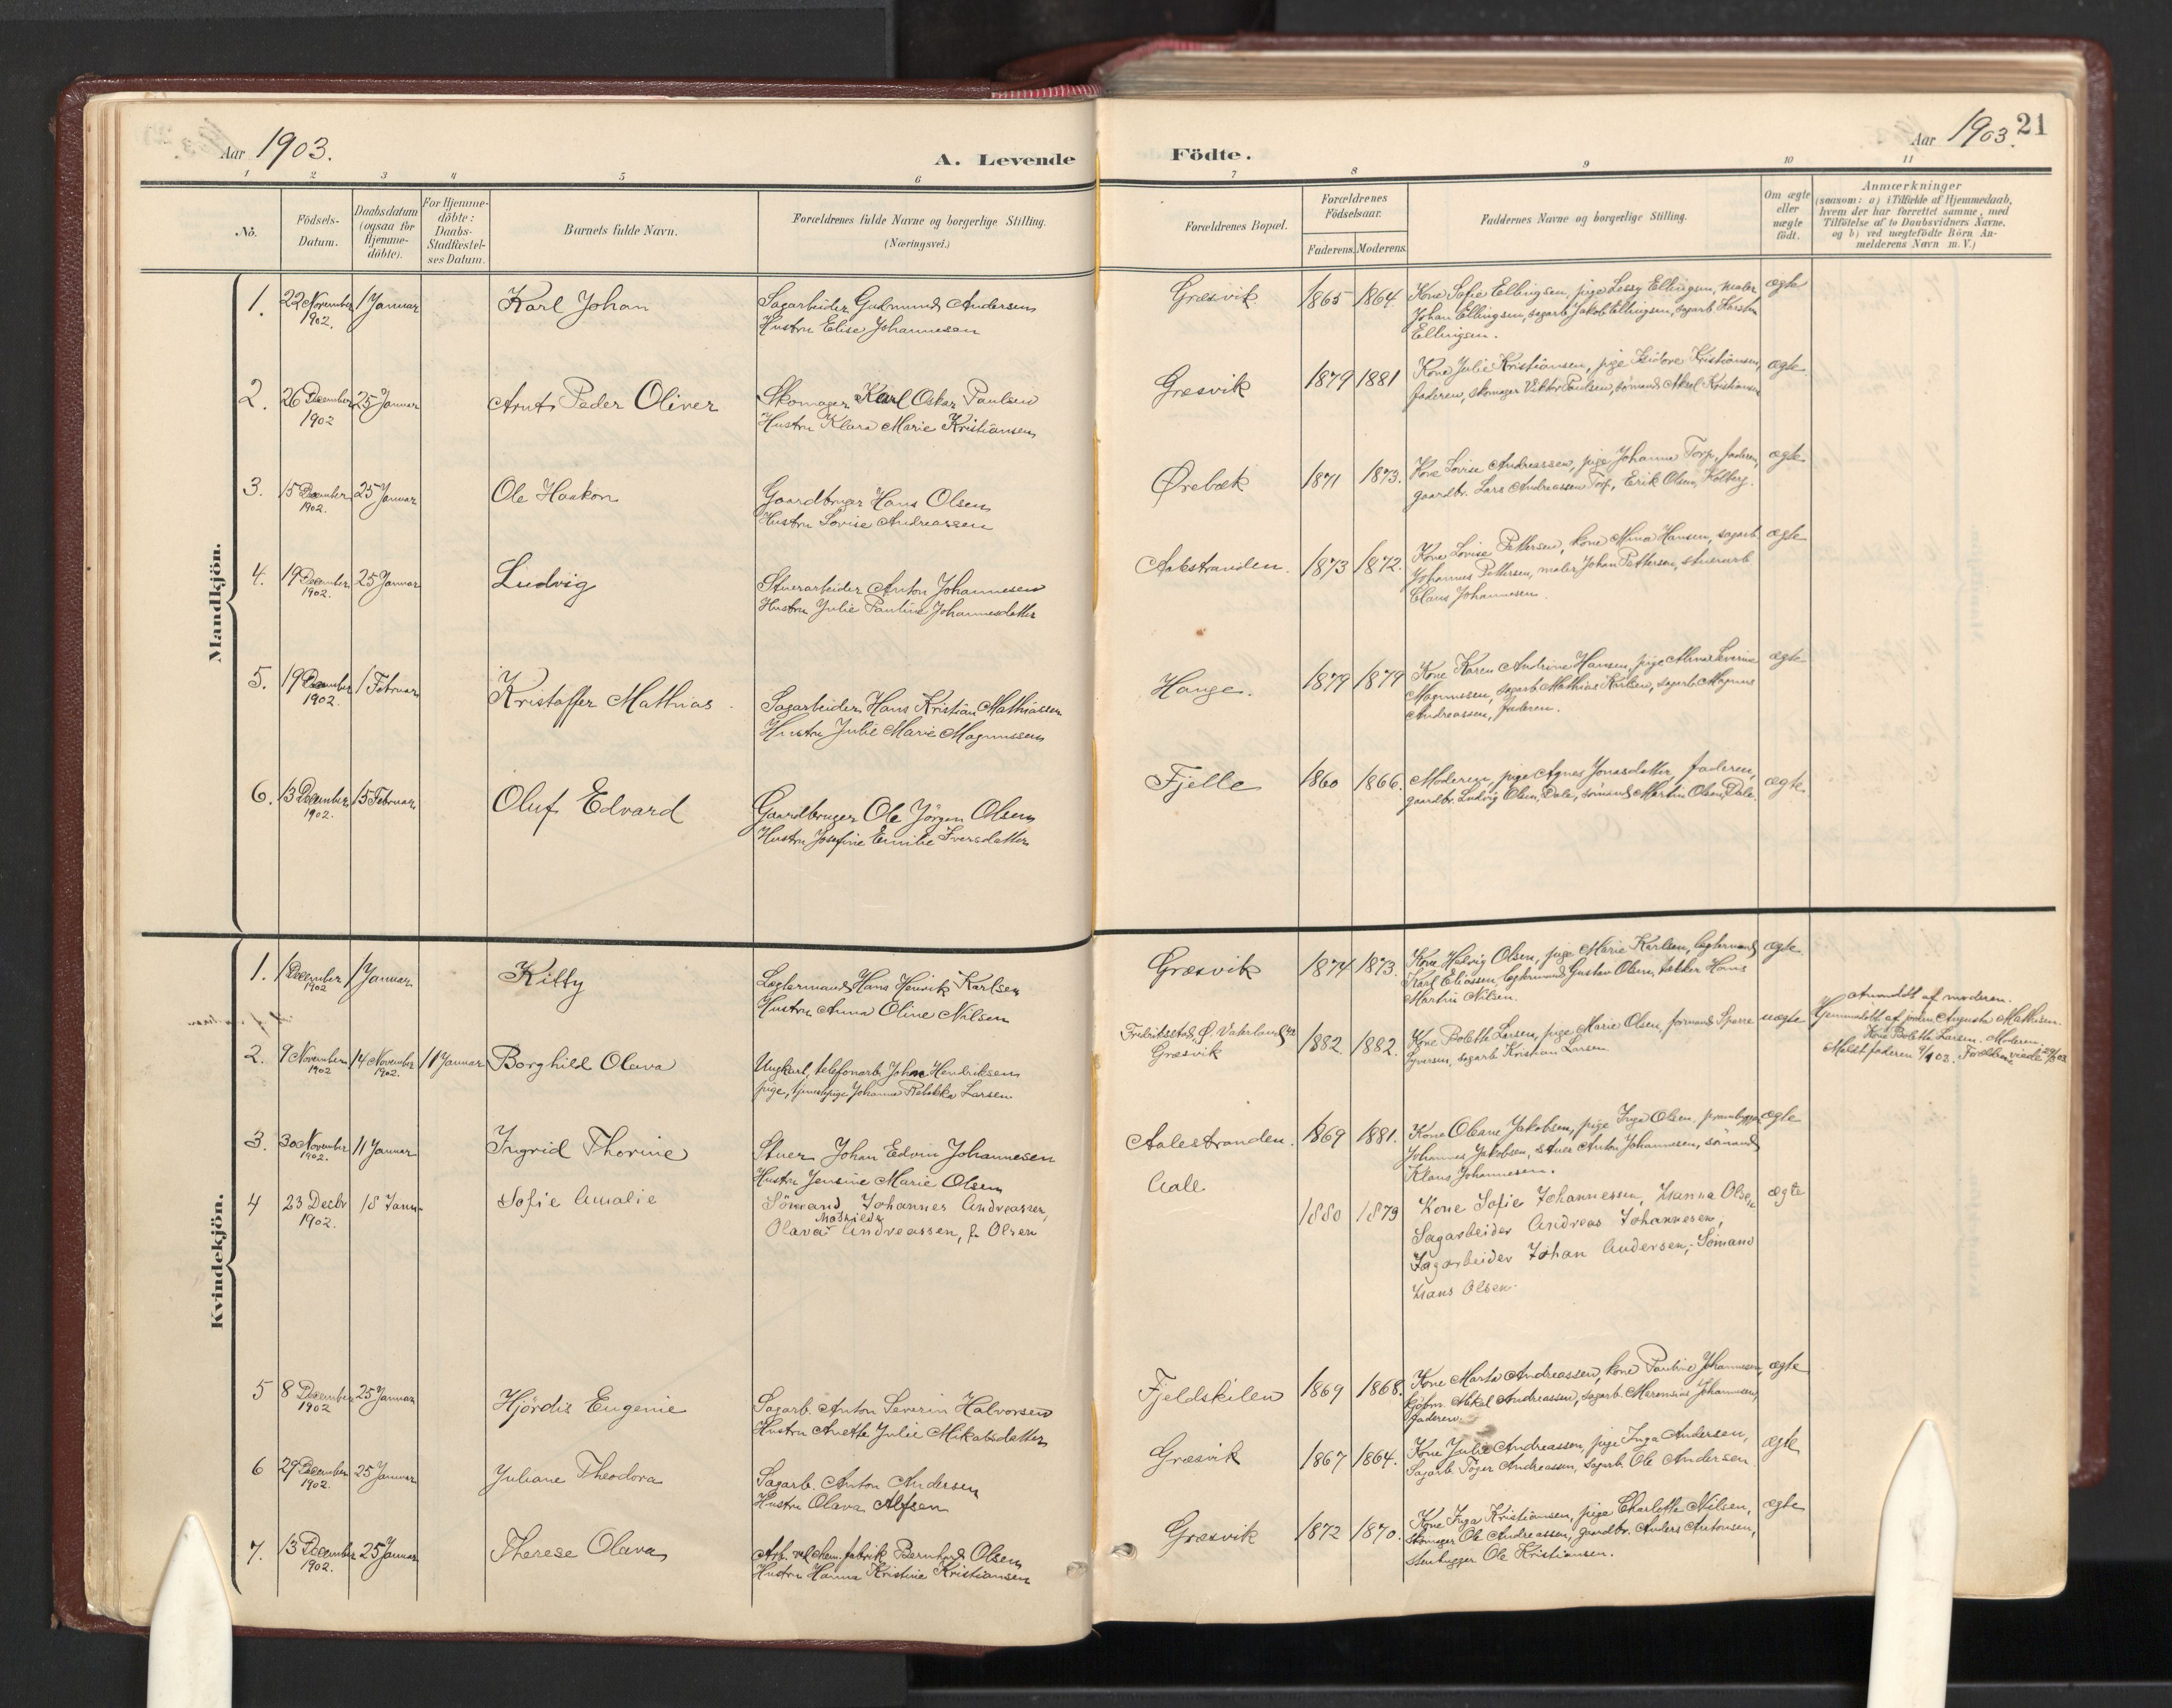 Aar 1903.
A. Levende
1 2 3 4 5 6
No.
Födsels-
Datum.
Daabsdatum
(ogsaa for
Hjemme-
döbte).
For Hjemme-
döbte:
Daabs-
Stadfæstel-
ses Datum.
Barnets fulde Navn.
Forældrenes fulde Navne og borgerlige Stilling.
(Næringsvei.)
Mandkjön.
1. 22 November 1 Januar Karl Johan Sagarbeider Gudmund Andersen
1902. Hustru Elise Johannesen
2. 26 December 25 Januar Arnt Peder Oliver Skomager Karl Oskar Paulsen
1902 Hustru Klara Marie Kristiansen
3. 15 December 25 Januar Ole Haakon Gaardbruger Hans Olsen
1902. Hustru Lovise Andreassen
4. 19 December 25 Januar Ludvig Stuerarbeider Anton Johannesen
1902. Hustru Julie Pauline Johannesdatter
5. 19 December 1 Februar Kristoffer Mathias. Sagarbeider Hans Kristian Mathiassen
1902. Hustru Julie Marie Magnussen
6. 13 December 15 Februar Oluf Edvard Gaardbruger Ole Jörgen Olsen
1902. Hustru Josefine Emilie Iversdatter
Kvindekjön.
1. 1 December 1 Januar Kitty Lægtermand Hans Henrik Karlsen
1902 Hustru Anna Oline Nilsen
2. 9 November 14 November 11 Januar Borghild Olava Ungkarl, telefonarb. John Hendriksen
1902 1902. pige, tjenestepige Johanne Larsen
3. 30 November 11 Januar Ingrid Thorine Stuer Johan Edvin Johannesen
1902. Hustru Jensine Marie Olsen
4 23 Decbr 18 Janu- Sofie Amalie Sömand Johannes Andreassen,
1902. Mathilde
Olava Andreassen, f. Olsen
5 8 December 25 Januar Hjördis Eugenie Sagarb. Anton Severin Halvorsen
1902 Hustru Anette Julie Mikalsdatter
6 29 December 25 Januar Juliane Theodora Sagarb. Anton Andersen
1902. Hustru Olava Alfsen
7. 13 December 25 Januar Therese Olava Arb. ved chem. fabrik Bernhard Olsen
1902. Hustru Hanna Kristine Kristiansen
Födte.
Aar 1903. 21
7 8 9 10 11
Forældrenes Bopæl.
Forældrenes
Födselsaar.
Faderens. Moderens.
Faddernes Navne og borgerlige Stilling.
Om ægte
eller
uægte
födt.
Anmærkninger
(saasom: a) i Tilfælde af Hjemmedaab,
hvem der har forrettet samme, med
Tilföielse af to Daabsvidners Navne.
og b) ved uægtefödte Börn An-
melderens Navn m. V.)
Græsvik 1865 1864. Kone Sofie Ellingsen, pige Lessy Ellingsen, maler ægte
Johan Ellingsen, sagarb. Jakob Ellingsen, sagarb. Karsten
Ellingsen.
Græsvik 1879 1881 Kone Julie Kristiansen, pige Isidore Kristiansen, ægte.
faderen, skomager Viktor Paulsen, sömand Aksel Kristiansen
Ørebæk 1871 1873. Kone Lovise Andreassen, pige Johanne Torp, faderen, ægte
gaardbr. Lars Andreassen Torp, Erik Olsen, Kolberg.
Aalestranden. 1873 1872. Kone Lovise Pettersen, kone Mina Hansen, sagarb. ægte
Johannes Pettersen, maler Johan Pettersen, stuerarb
Claus Johannesen.
Hauge. 1879 1879 Kone Karen Andrine Hansen, pige Mina Severine ægte
Magnussen, sagarb. Mathias Karlsen, sagarb. Magnus
Andreassen, faderen.
Fjelle 1860 1866. Moderen, pige Agnes Jonasdatter, faderen, ægte.
gaardbr. Ludvig Olsen, Dale, sömand Martin Olsen, Dale.
Græsvik 1874 1873. Kone Helvig Olsen, pige Marie Karlsen, lægtermand ægte
Karl Eliassen, lægtermand Gustav Olsen, takker Hans
Martin Nilsen.
Fredriksstad, Ø. Vaterland
Græsvik 1882. 1882. Kone Bolette Larsen, pige Marie Olsen, formand Sparre uægte
Syversen, sagarb. Kristian Larsen
Anmeldt af moderen.
Hjemmedöbt af jordm. Augusta Mathisen.
Kone Bolette Larsen. Moderen.
Meldt faderen 9/1 03. Forældrene viede 29/3 03
Aalestranden. 1869 1881. Kone Oleane Jakobsen, pige Inga Olsen, prambygger ægte
Johannes Jakobsen, stuer Anton Johannesen, sömand
Klaus Johannesen.
Aale 1880 1879 Kone Sofie Johannessen, Hanna Olsen, ægte
Sagarbeider Andreas Johannesen,
Sagarbeider Johan Andersen, Sömand
Hans Olsen
Fjeldskilen 1869 1868. Kone Marta Andreassen, kone Pauline Johannesen, ægte
kjöbm. Mikal Andreassen, sagarb. Johannesen,
faderen.
Græsvik 1867 1864. Kone Julie Andreassen, pige Inga Andersen, ægte
Sagarb. Töger Andreassen, sagarb. Ole Andersen
Græsvik 1872 1870. Kone Inga Kristiansen, pige Charlotte Nilsen, ægte
skomager Ole Andreassen, gaardbr. Anders Antonsen,
stenhugger Ole Kristiansen.